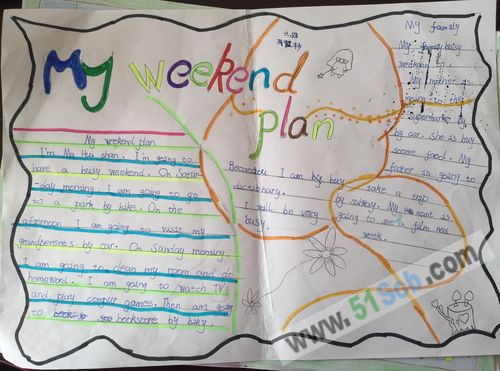 My weekend
plan
My weekend plan
I'm Ma shan. I'm going to
have a busy weekend. On Satur-
-day morning I am going to go
to a park by bike. On the
afternoon I am going to visit my
grandparents by car. On Sunday morning.
I am going to clean my room and do
homework. I am going to watch TV
and play games. Then am going
to bookstore by
Because I am buy
dictionary.
I will be very
busy.
My family
My busy
weekend
My mother is
going to the
supermarket by
by car. She is buy
some food. My
father is going to
take a trip
by subway. My aunt is
going to see a film next
week.
www.51Scb.com